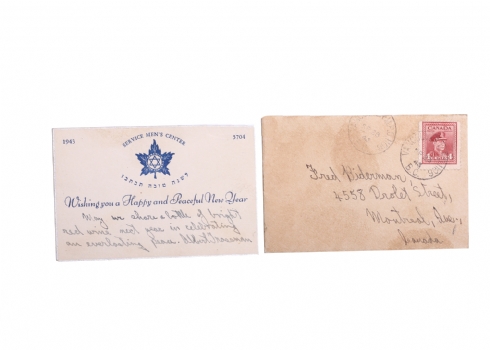 1943 5704
SERVICE MEN'S CENTER
לשנה טובה תכתבו
Wishing you a Happy and Peaceful New Year
May we share a bottle of bright
red wine next year in celebrating
an everlasting peace.
CANADA
4 4
Fred Widerman
4558 Drolet Street,
Montreal, Que.,
Canada